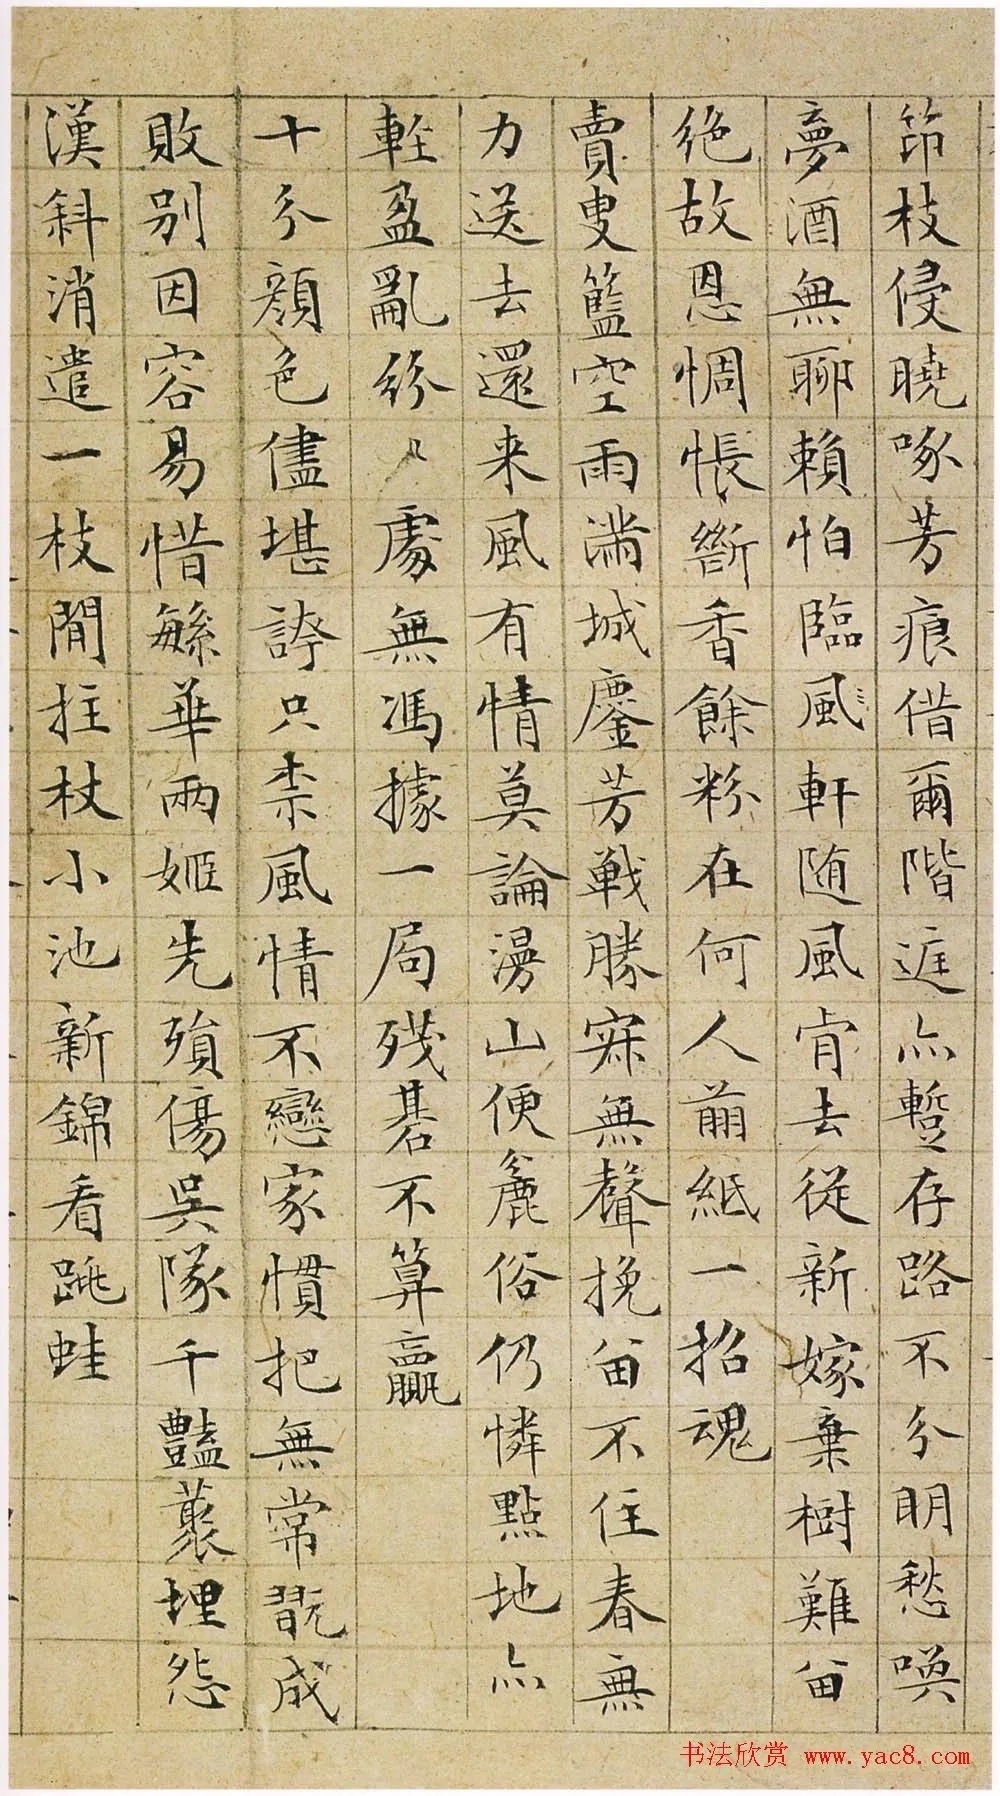 枝侵曉啄芳痕借爾階庭亦暫存路不分明愁喚
夢酒無聊賴怕臨風軒随風肯去從新嫁棄樹難畄
絶故恩惆悵斷香餘粉在何人剪紙一招魂
賣叟籃空雨滿城鏖芳戰勝寂無聲挽畄不住春無
力送去還来風有情莫論漫山便麄俗仍憐點地亦
輕盈亂紛〻處無馮據一局殘碁不算贏
十分顔色儘堪誇只柰風情不戀家慣把無常翫成
敗别因容易惜繁華兩姬先殞傷吳隊千豔叢埋怨
漢斜消遣一枝閒拄杖小池新錦看跳蛙
书法欣赏 www.yac8.com